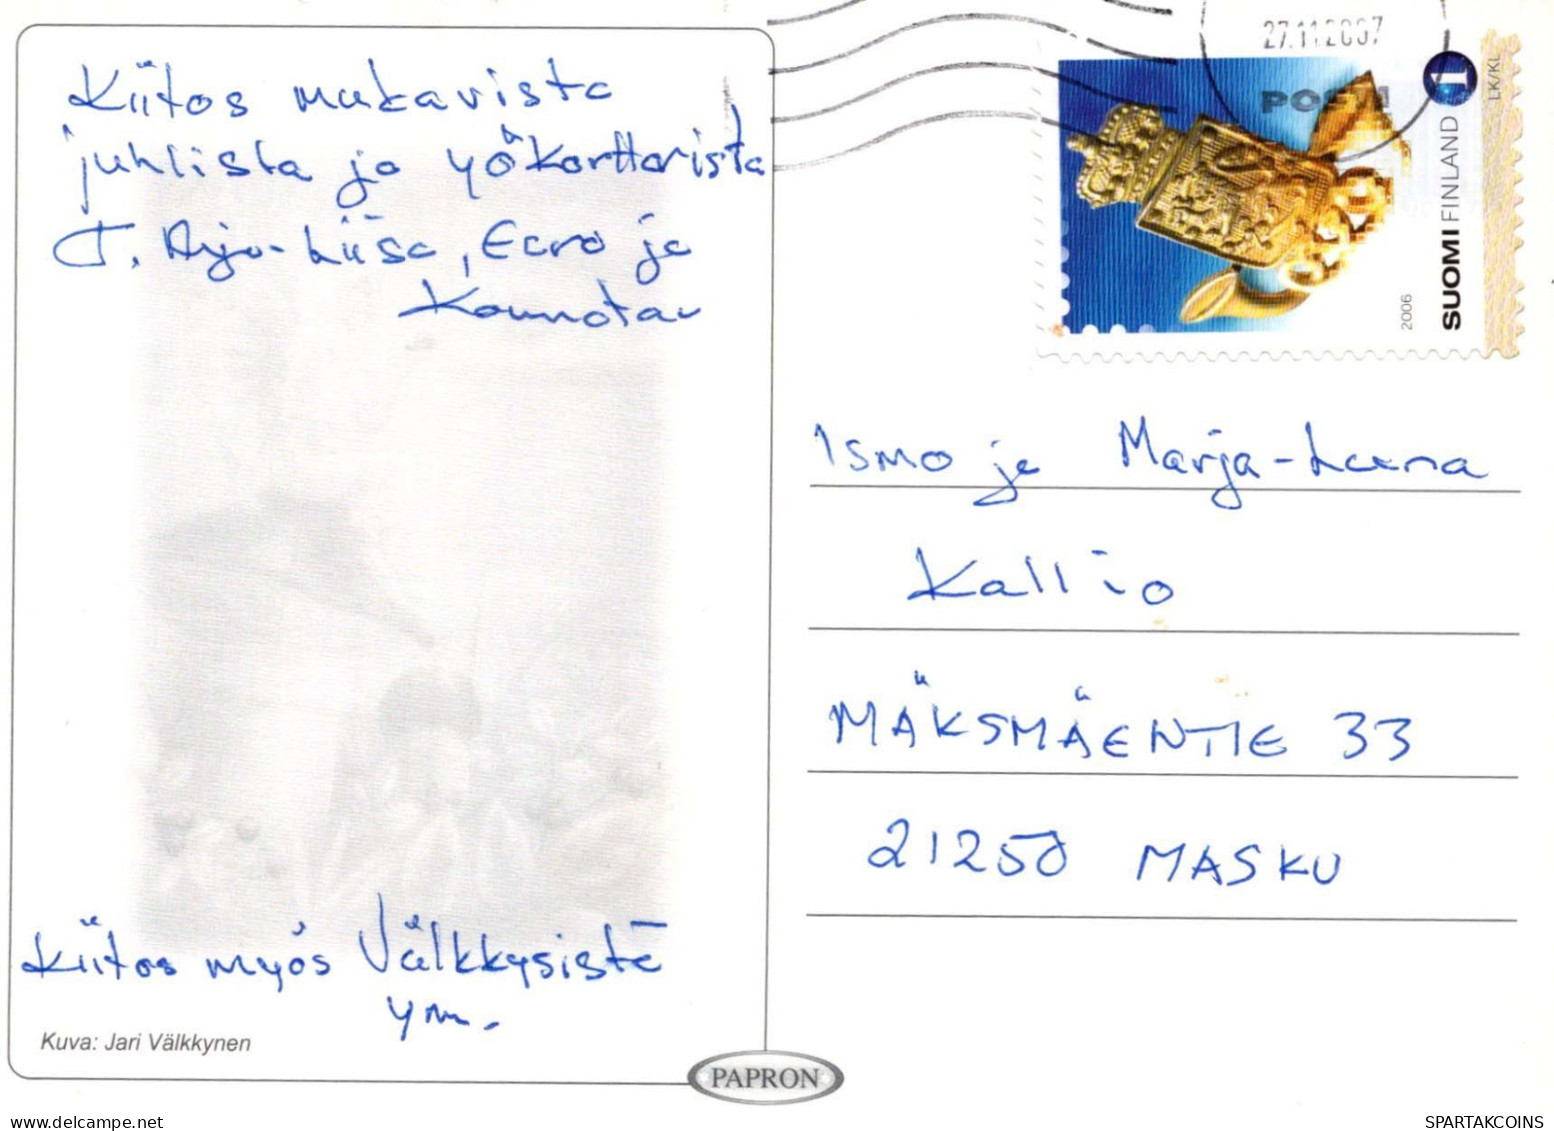 Kiitos mukavista
juhlista ja yökorttarista
T. Arja-Liisa, Eero ja
Kiitos myös Välkkysistä
ym.
Kuva: Jari Välkkynen
PAPRON
27.11.2007
POSTI
1
LK/KL
SUOMI FINLAND
2006
Ismo ja Marja-Leena
Kallio
MÄKSMÄENTIE 33
21250 MASKU
SPARTAKCOINS